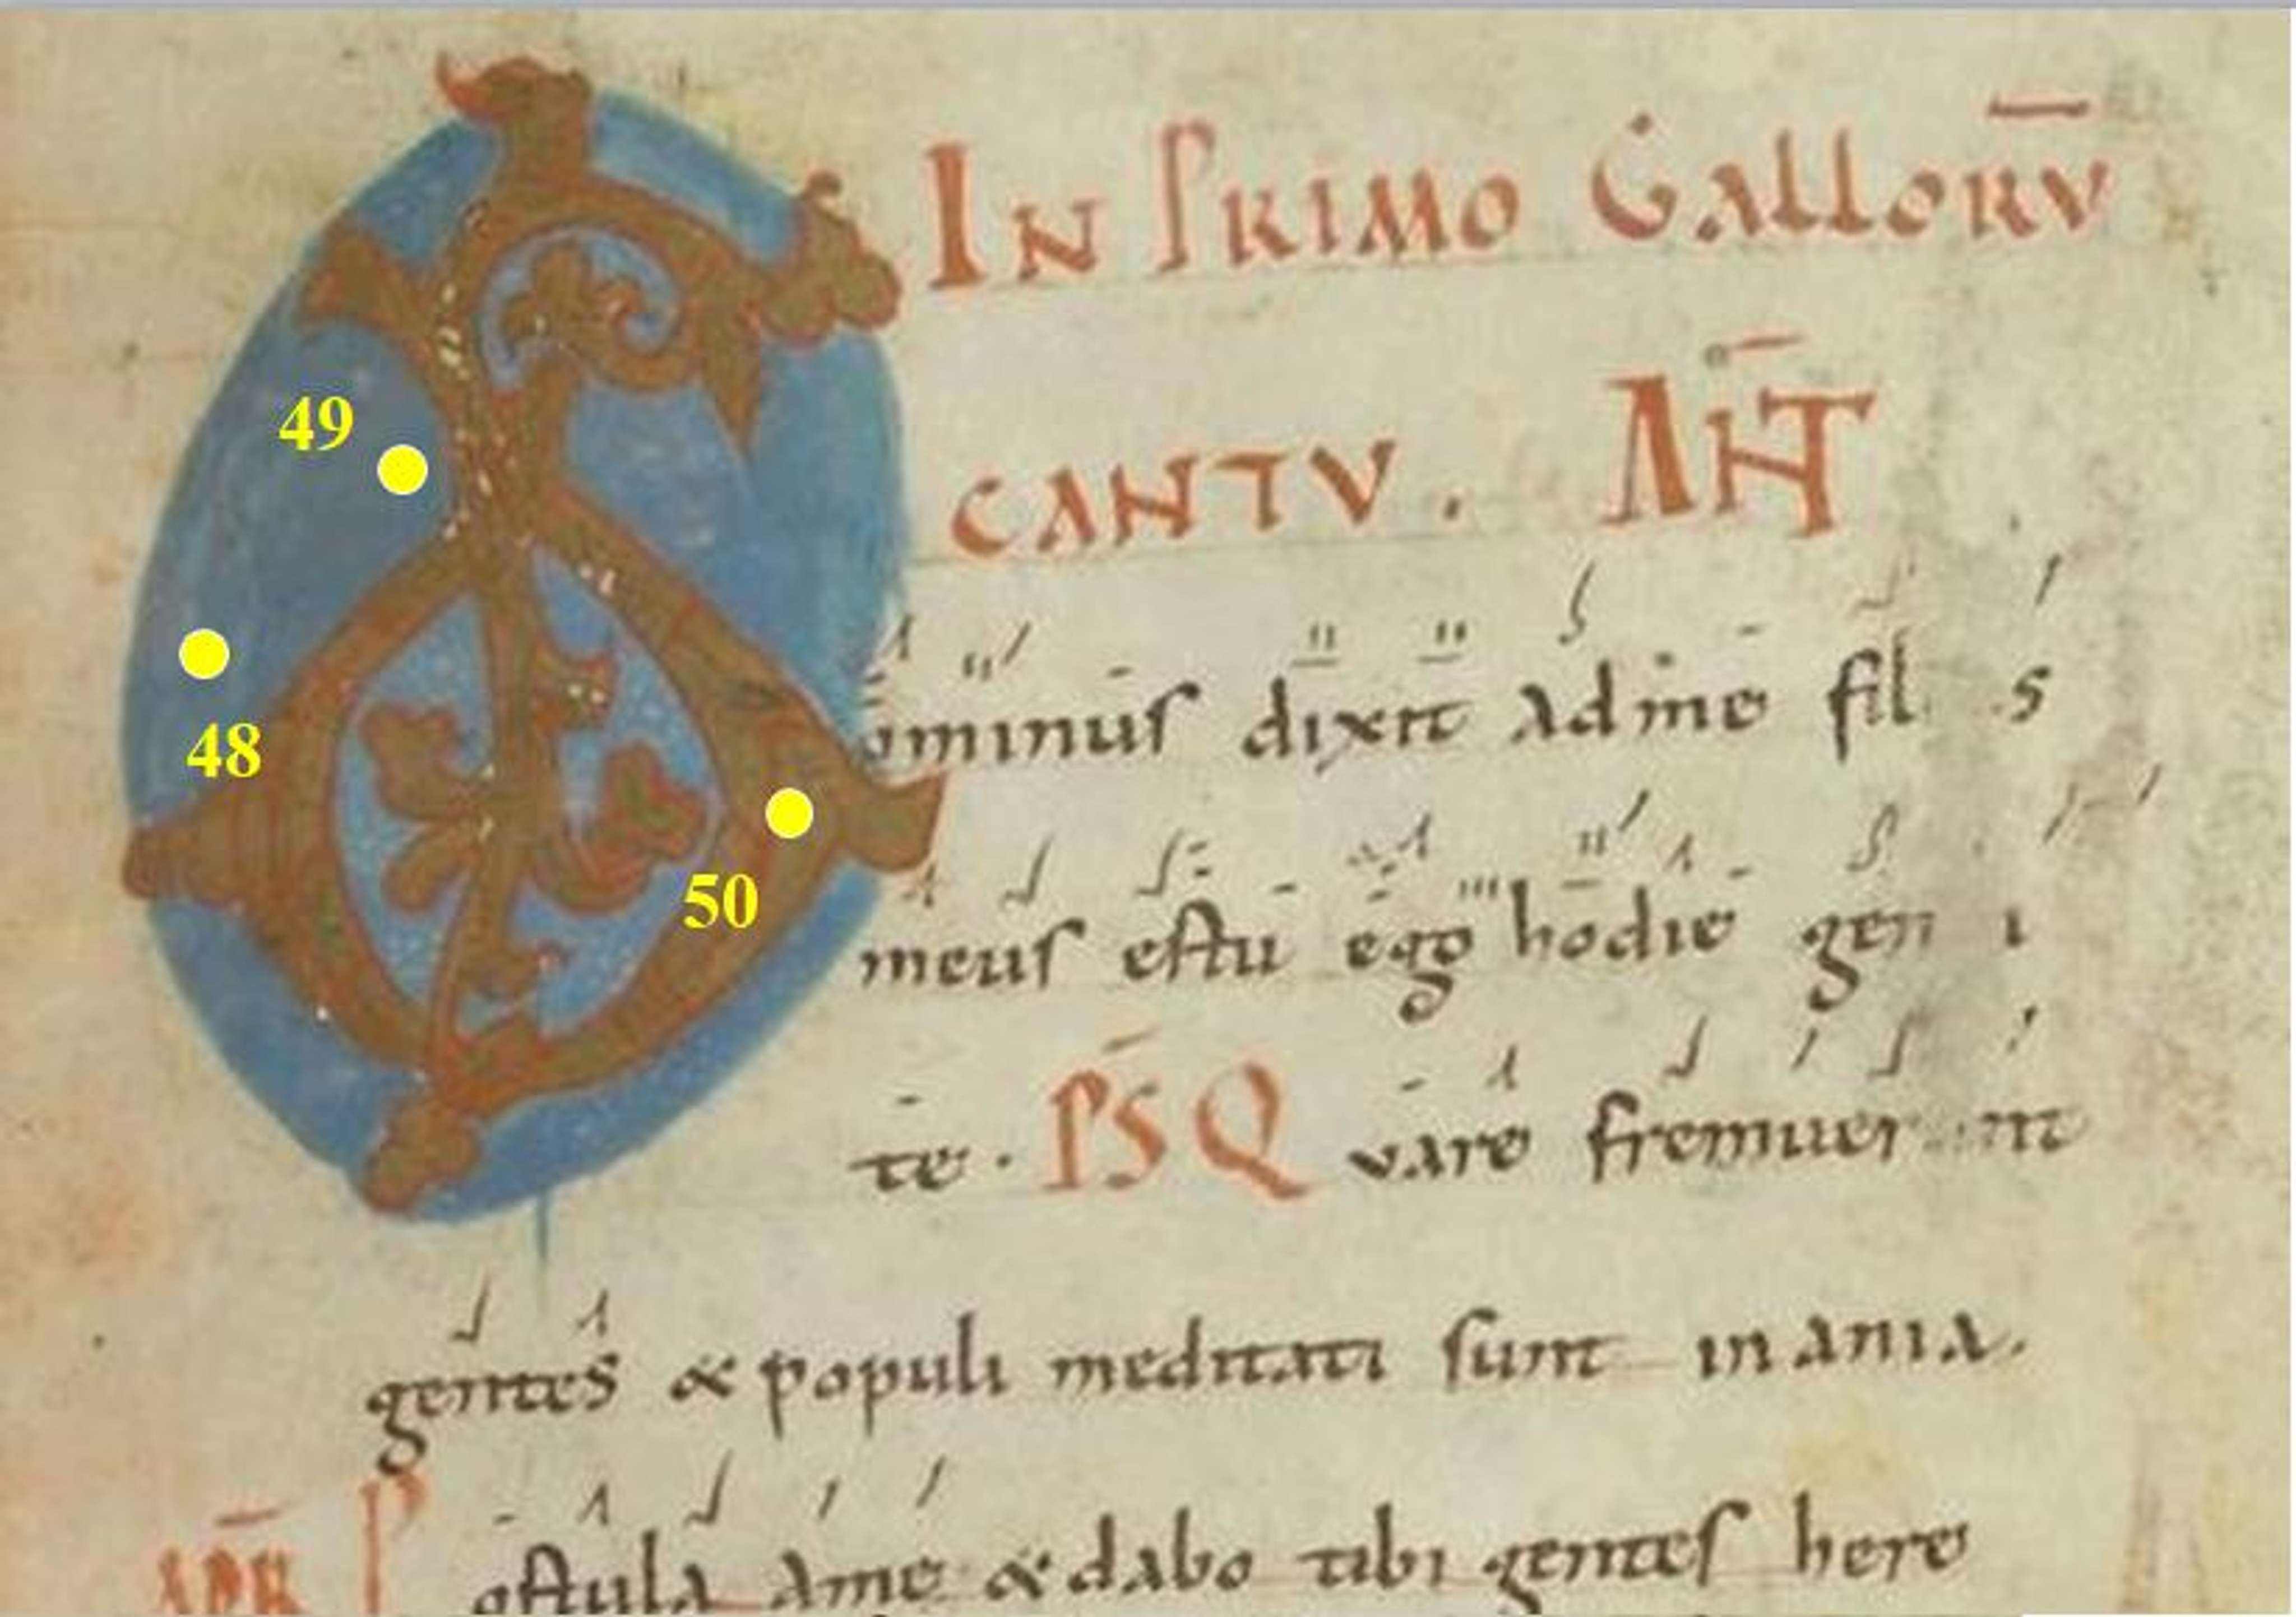 IN PRIMO GALLORV̄
CANTV. AÑT
49
48
50
ominus dixit ad me fil s
meus es tu ego hodie gen i
te. PS Q vare fremuer nt
gentes & populi meditati sunt inania.
APR P ostula a me & dabo tibi gentes here